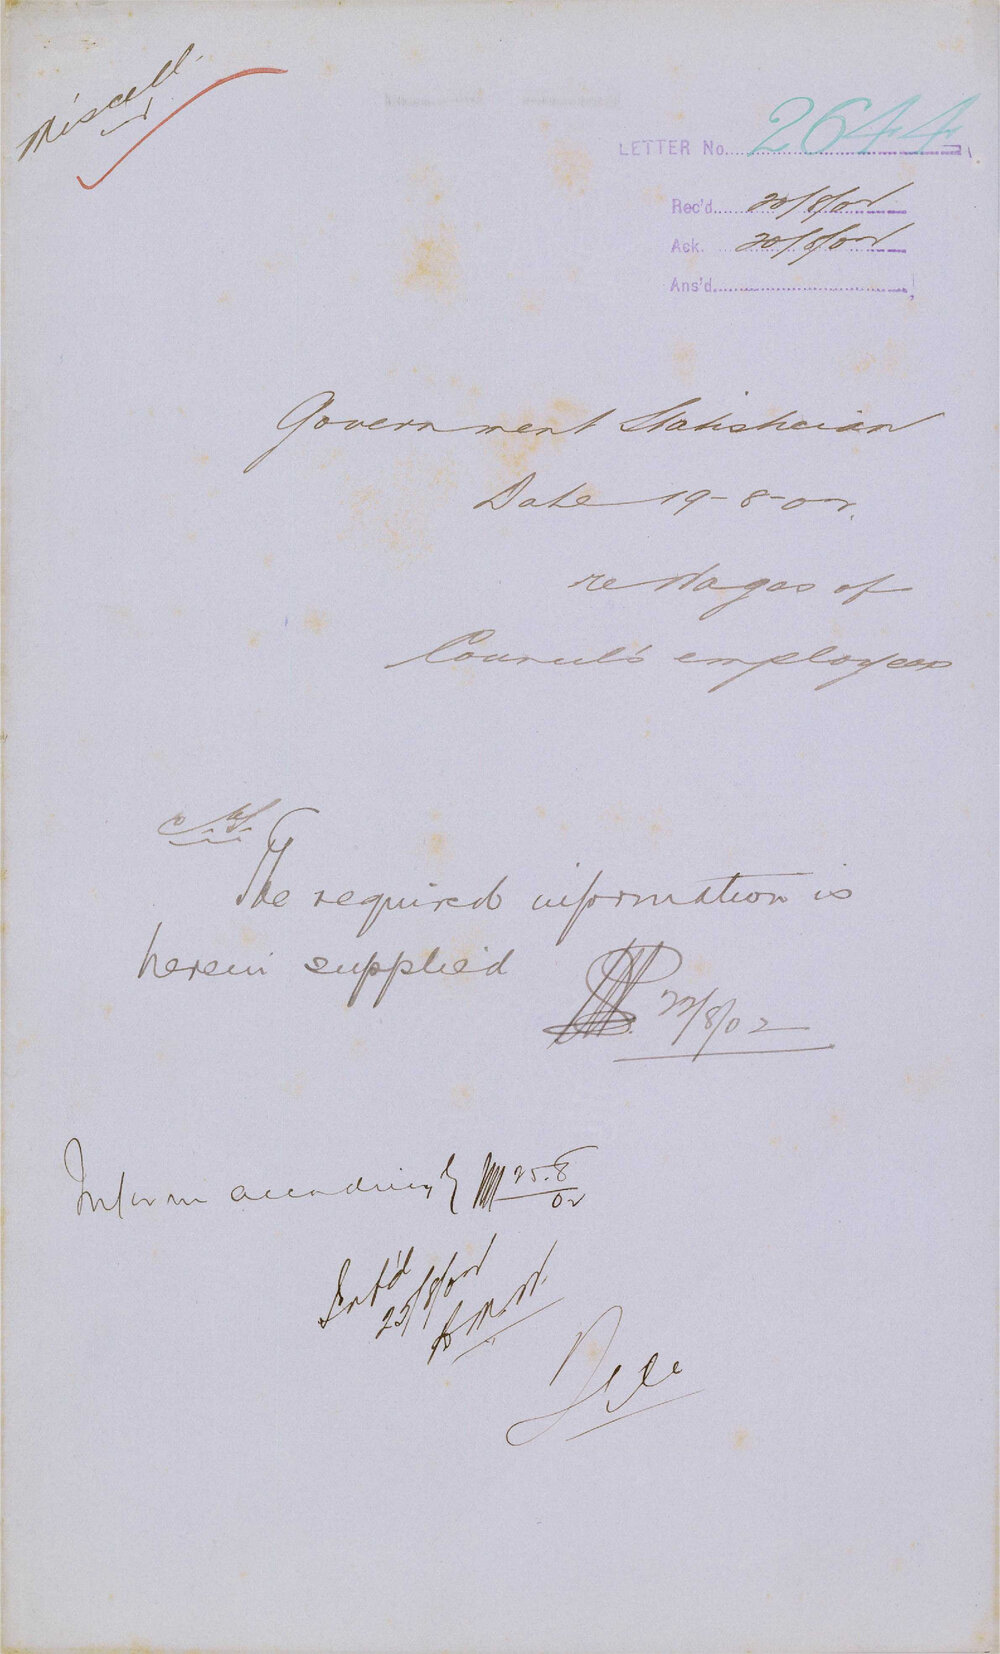 Miscell.
LETTER No. 2644
Rec'd. 20/8/02
Ack. 20/8/02
Ans'd.
Government Statistician
Date 19-8-02.
re Wages of
Council's employees
The required information is
herein supplied
22/8/02
Inform accordingly 25.8
02
25/8/02
File